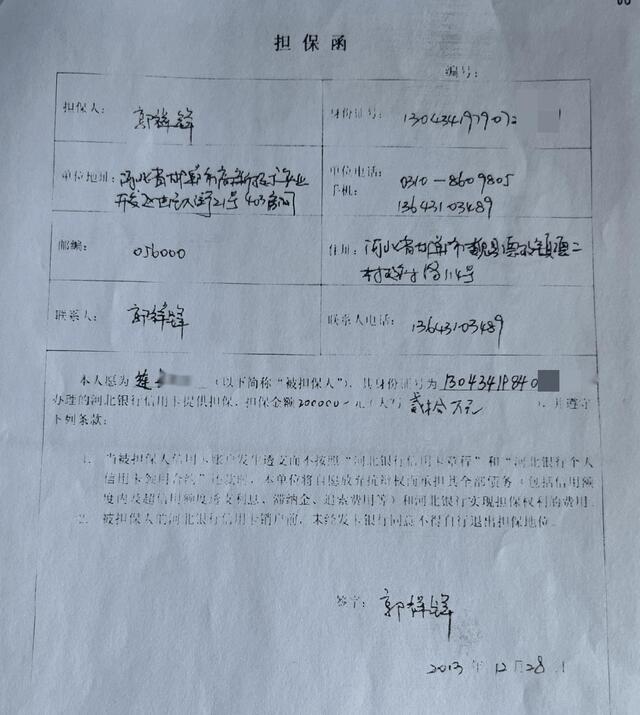 担保函
编号：
担保人： 郭祥锋
身份证号： 1304341979072 1
单位地址： 河北省邯郸市高新技术产业
开发区世纪大街21号403房间
单位电话： 0310-8609805
手机： 13643103489
邮编： 056000
住址： 河北省邯郸市魏县德政镇
村 114号
联系人： 郭祥锋
联系人电话： 13643103489
本人愿为 （以下简称“被担保人”），其身份证号为1304341984 0
办理的河北银行信用卡提供担保，担保金额200000一元（大写 贰拾万元 ），并遵守
下列条款：
1. 当被担保人信用卡账户发生透支而不按照“河北银行信用卡章程”和“河北银行个人
信用卡领用合约”还款时，本单位将自愿放弃抗辩权而承担其全部债务（包括信用额
度内及超信用额度透支利息、滞纳金、追索费用等）和河北银行实现担保权利的费用。
2. 被担保人的河北银行信用卡销户前，未经发卡银行同意不得自行退出担保地位。
签字： 郭祥锋
2013 年 12 月 28